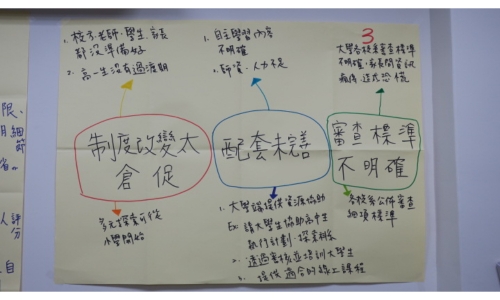 1. 校方、老師、學生、家長
都沒準備好
2. 高一生沒有過渡期
1. 自主學習內容
不明確
2. 師資、人力不足
3
大學各校系審查標準
不明確
造成恐慌
制度改變太
倉促
配套未完善
審查標準
不明確
多元探索可從
小學開始
1. 大學端提供資源協助
Ex: 讓大學生協助高中生
執行計劃、探索科系
2. 透過審核並培訓大學生
3. 提供適合的線上課程
各校系公佈審查
細項標準
限、
月細
節
省。
人評
分
自